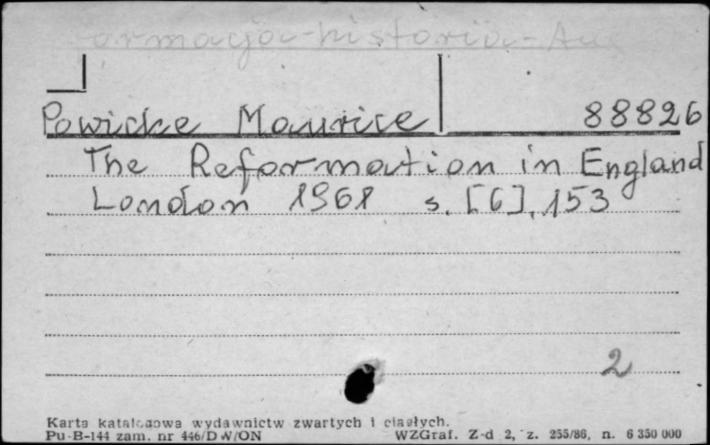 ormacja-historia-An
Powicke Maurice 88826
The Reformation in England
London 1961 s. [6], 153
2
Karta katalogowa wydawnictw zwartych i ciągłych.
Pu-B-144 zam. nr 446/D W/ON WZGraf. Z-d 2, z. 255/86, n. 6 350 000